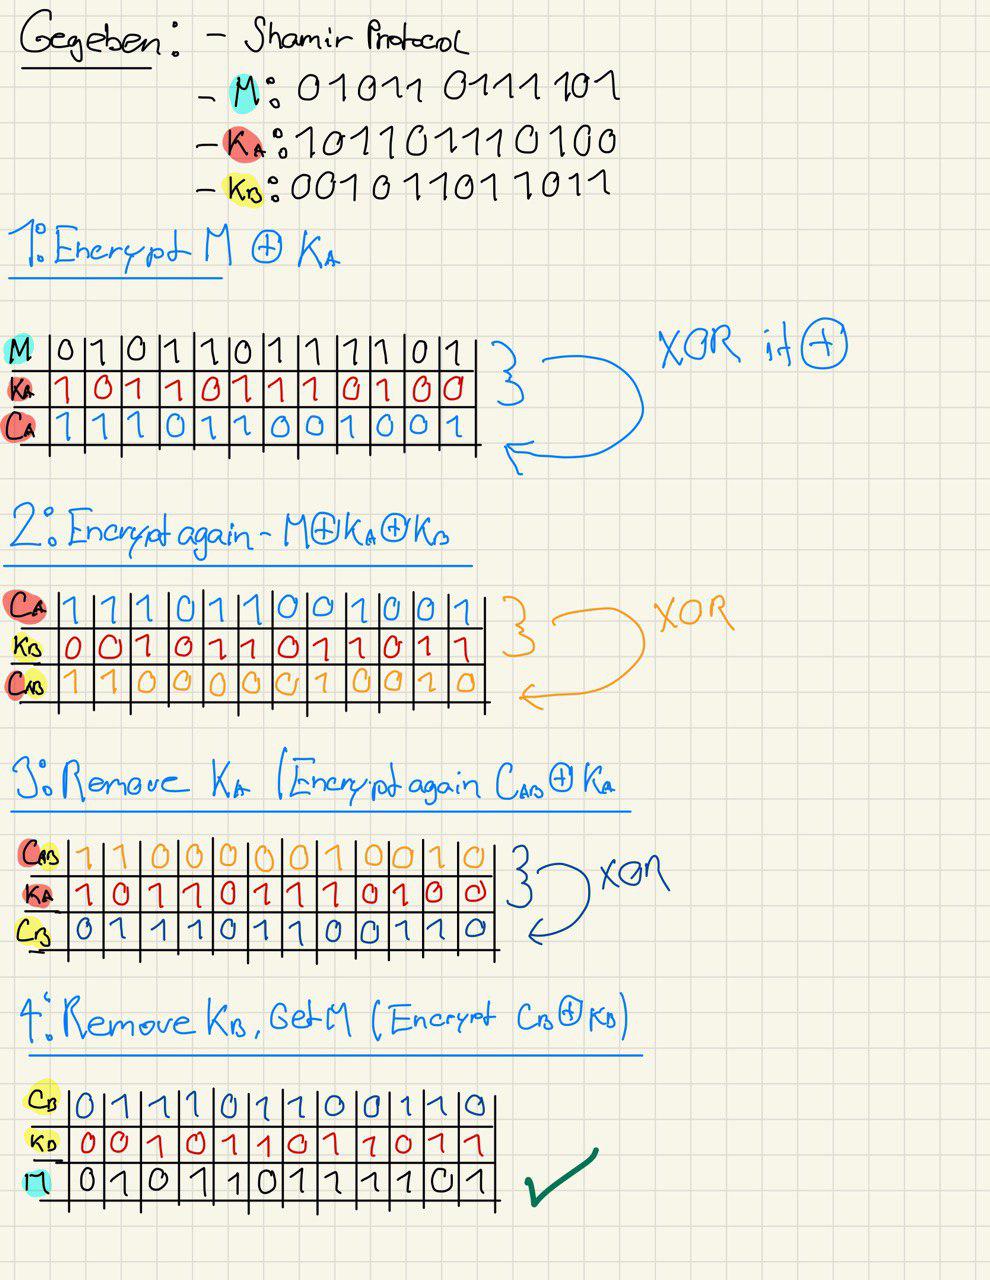 Gegeben: - Shamir Protocol
- M: 010110111101
- KA: 101101110100
- KB: 001011011011
1: Encrypt M ⊕ KA
M 0 1 0 1 1 0 1 1 1 1 0 1
KA 1 0 1 1 0 1 1 1 0 1 0 0
CA 1 1 1 0 1 1 0 0 1 0 0 1
XOR it ⊕
2: Encrypt again - M⊕KA⊕KB
CA 1 1 1 0 1 1 0 0 1 0 0 1
KB 0 0 1 0 1 1 0 1 1 0 1 1
CAB 1 1 0 0 0 0 0 1 0 0 1 0
XOR
3: Remove KA (Encrypt again CAB⊕KA
CAB 1 1 0 0 0 0 0 1 0 0 1 0
KA 1 0 1 1 0 1 1 1 0 1 0 0
CB 0 1 1 1 0 1 1 0 0 1 1 0
XOR
4: Remove KB, Get M (Encrypt CB⊕KB)
CB 0 1 1 1 0 1 1 0 0 1 1 0
KB 0 0 1 0 1 1 0 1 1 0 1 1
M 0 1 0 1 1 0 1 1 1 1 0 1